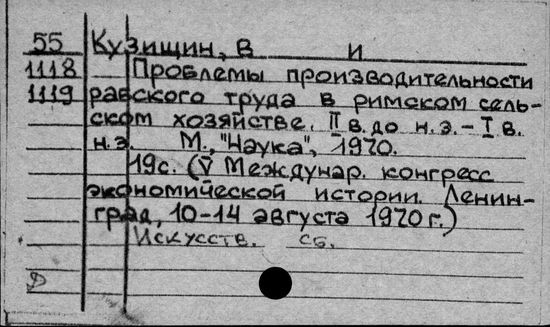 55 Кузищин, В И
1118 Проблемы производительности
1119 рабского труда в римском сель-
ском хозяйстве. II в. до н.э. – I в.
н.э. М., "Наука", 1970.
19с. (V Междунар. конгресс
экономической истории. Ленин-
град, 10-14 августа 1970 г.)
Искусств. сб.
Д